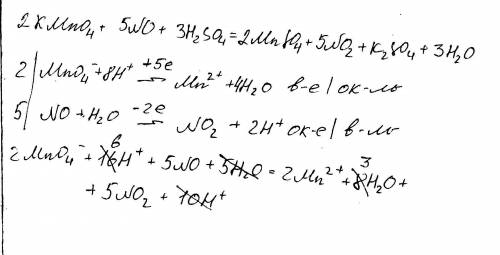 2KMnO₄ + 5NO + 3H₂SO₄ = 2MnSO₄ + 5NO₂ + K₂SO₄ + 3H₂O
2 | MnO₄⁻ + 8H⁺ +5e → Mn²⁺ + 4H₂O в-е / ок-ль
5 | NO + H₂O -2e → NO₂ + 2H⁺ ок-е / в-ль
2MnO₄⁻ + 16 6 H⁺ + 5NO + 5H₂O = 2Mn²⁺ + 8 3 H₂O +
+ 5NO₂ + 10H⁺